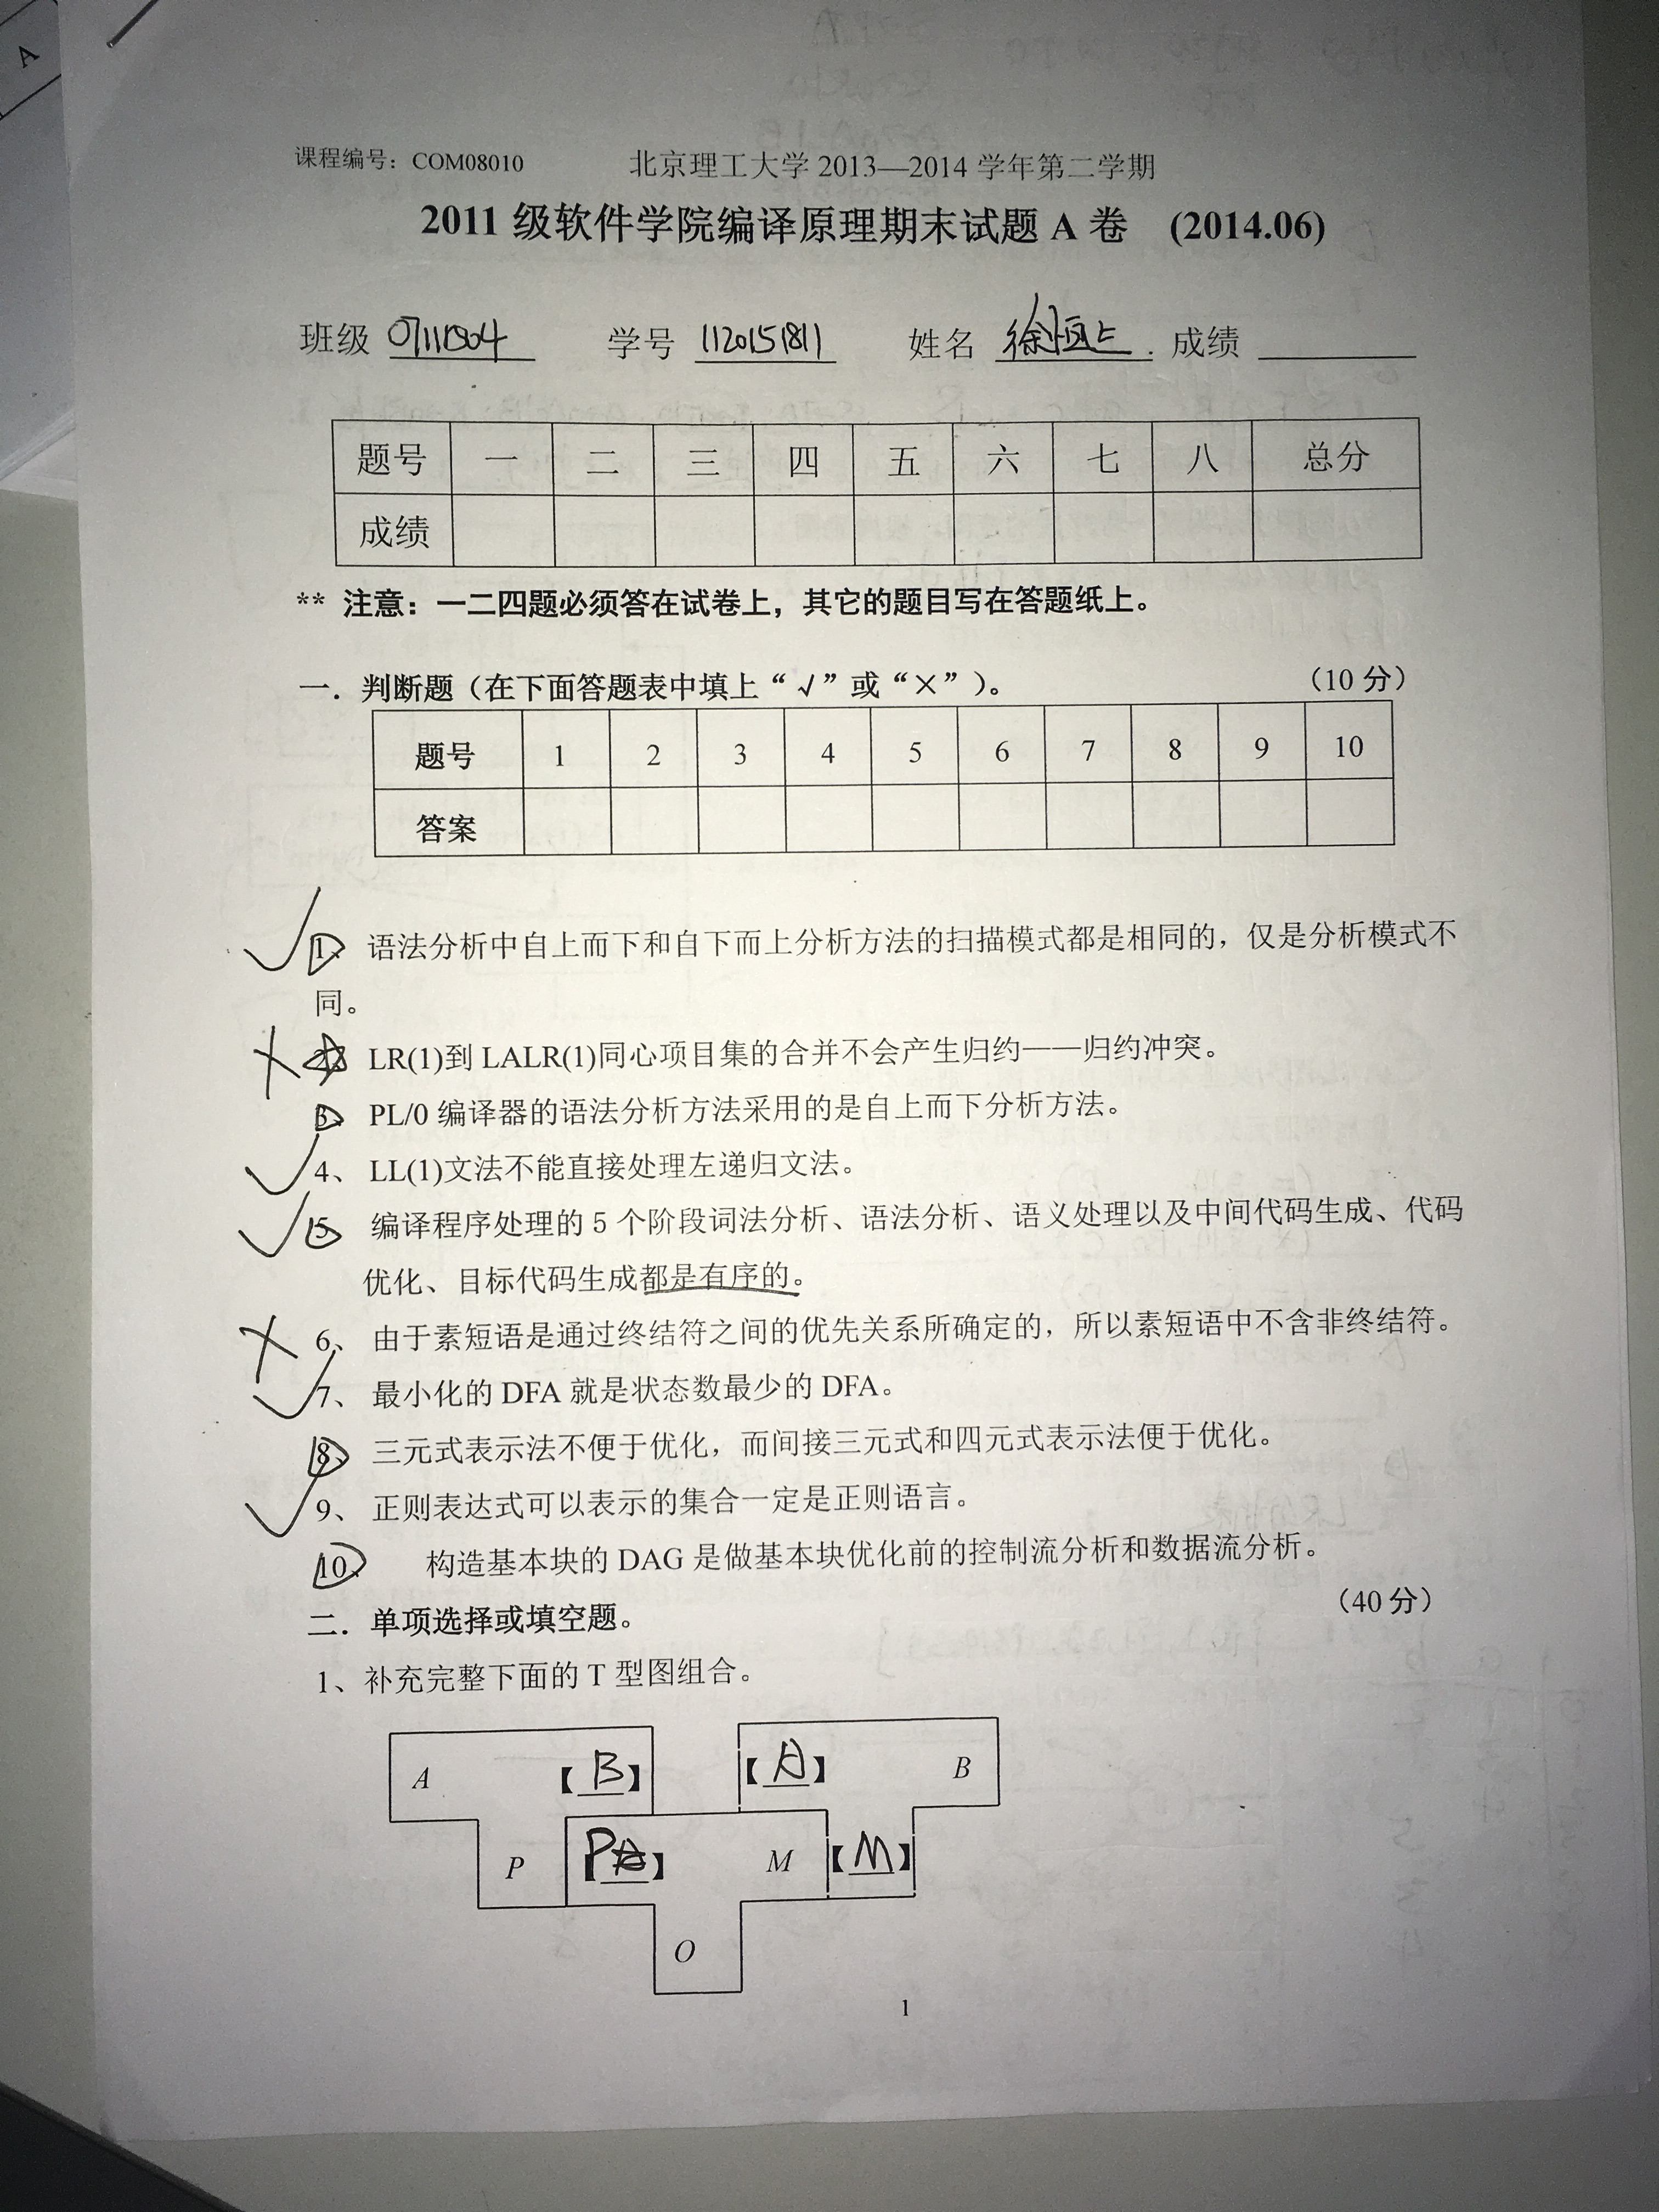 A
课程编号：COM08010 北京理工大学 2013—2014 学年第二学期
2011 级软件学院编译原理期末试题 A 卷 (2014.06)
班级 学号 1120151811 姓名 成绩
题号 一 二 三 四 五 六 七 八 总分
成绩
** 注意：一二四题必须答在试卷上，其它的题目写在答题纸上。
一．判断题（在下面答题表中填上“√”或“×”）。 （10 分）
题号 1 2 3 4 5 6 7 8 9 10
答案
√ 1、 语法分析中自上而下和自下而上分析方法的扫描模式都是相同的，仅是分析模式不
同。
× 2、 LR(1)到 LALR(1)同心项目集的合并不会产生归约——归约冲突。
3、 PL/0 编译器的语法分析方法采用的是自上而下分析方法。
√ 4、 LL(1)文法不能直接处理左递归文法。
√ 5、 编译程序处理的 5 个阶段词法分析、语法分析、语义处理以及中间代码生成、代码
优化、目标代码生成都是有序的。
× 6、 由于素短语是通过终结符之间的优先关系所确定的，所以素短语中不含非终结符。
√ 7、 最小化的 DFA 就是状态数最少的 DFA。
8、 三元式表示法不便于优化，而间接三元式和四元式表示法便于优化。
√ 9、 正则表达式可以表示的集合一定是正则语言。
10、 构造基本块的 DAG 是做基本块优化前的控制流分析和数据流分析。
二．单项选择或填空题。 （40 分）
1、补充完整下面的 T 型图组合。
A 【B】 【A】 B
P 【P】 M 【M】
O
1